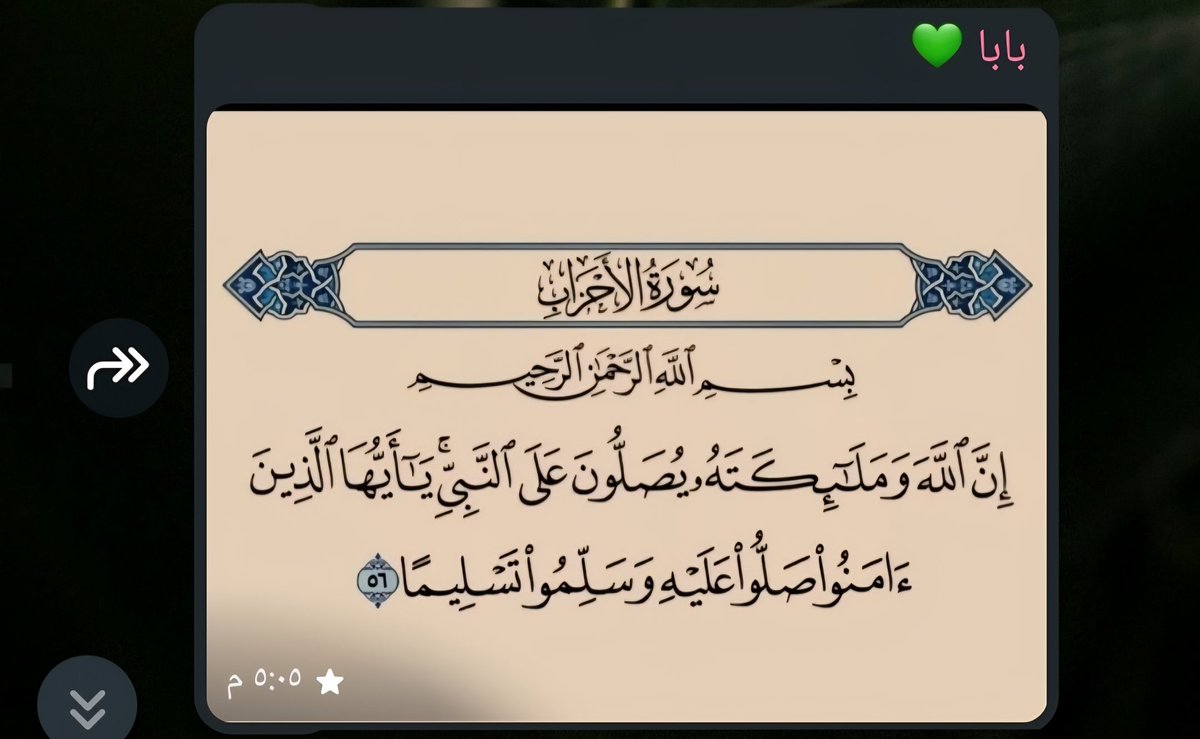 بابا 💚
سُورَةُ الأَحْزَابِ
بِسْمِ ٱللَّهِ ٱلرَّحْمَٰنِ ٱلرَّحِيمِ
إِنَّ ٱللَّهَ وَمَلَٰٓئِكَتَهُۥ يُصَلُّونَ عَلَى ٱلنَّبِيِّۚ يَٰٓأَيُّهَا ٱلَّذِينَ
ءَامَنُوا۟ صَلُّوا۟ عَلَيْهِ وَسَلِّمُوا۟ تَسْلِيمًا ٥٦
٥:٠٥ م